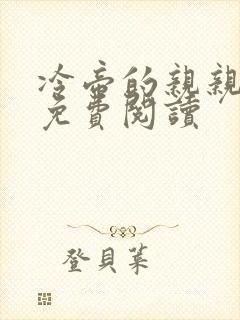 冷帝的親親
免費閱讀
登貝葉